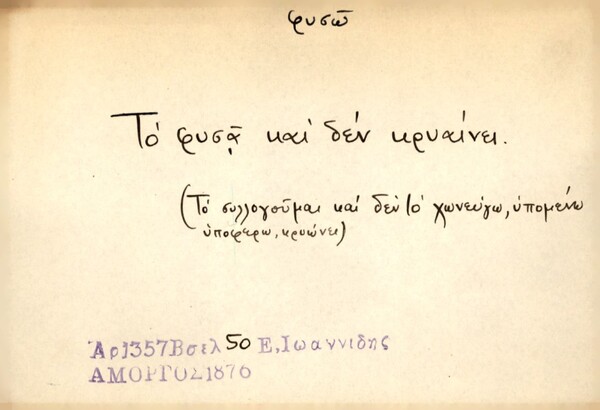 φυσῶ
Τὸ φυσᾷ καὶ δέν κρυαίνει.
(Τὸ συλλογοῦμαι καὶ δέν τὸ χωνεύγω, ὑπομένω
ὑποφέρω, κρυώνει)
Ἀρ1357Βσελ 50 Ε,Ιωαννιδης
ΑΜΟΡΓΟΣ1876